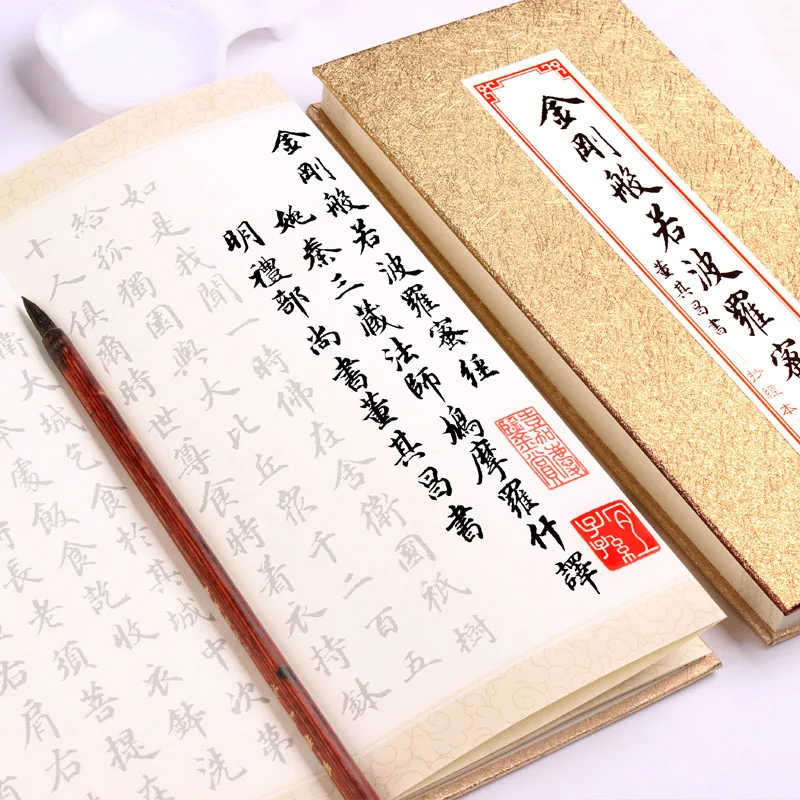 金剛般若波羅蜜
董其昌書
抄經本
金剛般若波羅蜜經
姚秦三藏法師鳩摩羅什譯
明禮部尚書董其昌書
如是我聞一時佛在舍衛國祇樹
給孤獨園與大比丘衆千二百五
十人俱爾時世尊食時著衣持鉢
衛大城乞食於其城中次第
本處飯食訖收衣鉢洗
長老須菩提在
右肩右